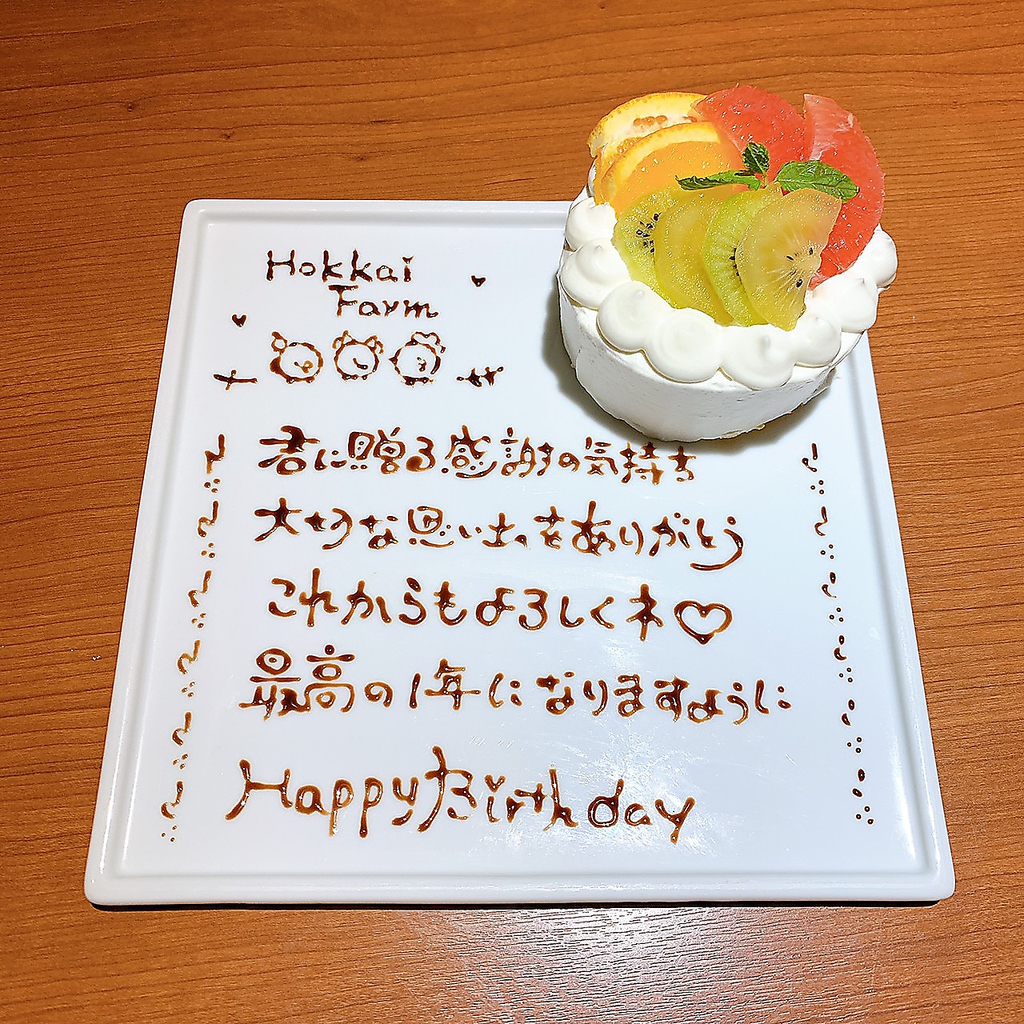 Hokkai
Farm
君に贈る感謝の気持ち
大切な思い出をありがとう
これからもよろしくネ♡
最高の1年になりますように
Happy Birthday